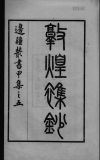 邊疆叢書甲集之五
敦煌雜鈔